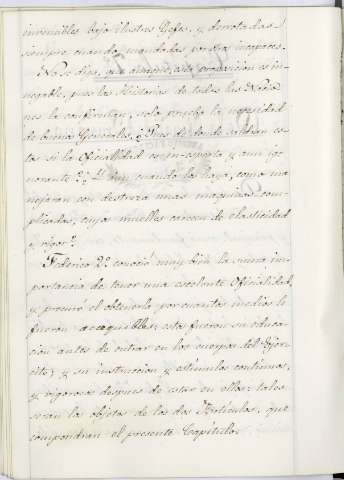 invencibles bajo ilustres Gefes, y derrotadas
siempre cuando mandadas por otros inexpertos.
No se diga, que aunque esta proposicion es in-
negable, pues las Historias de todas las Nacio-
nes la confirman, solo prueba la necesidad
de buenos Generales. ¿Pues de donde saldran es-
tos si la Oficialidad es inexperta y aun ig-
norante? ¿Y aun cuando los haya, como ma-
nejaran con destreza unas maquinas com-
plicadas, cuyos muelles carecen de elasticidad
y vigor?
Federico 2º conoció muy bien la suma im-
portancia de tener una excelente Oficialidad,
y procuró el obtenerla por cuantos medios le
fueron asequibles; estos fueron su educa-
cion antes de entrar en los cuerpos del Ejer-
cito; y su instruccion y estimulos continuos,
y vigorosos despues de estar en ellos: tales
seran los objetos de los dos Articulos, que
compondran el presente Capitulo.